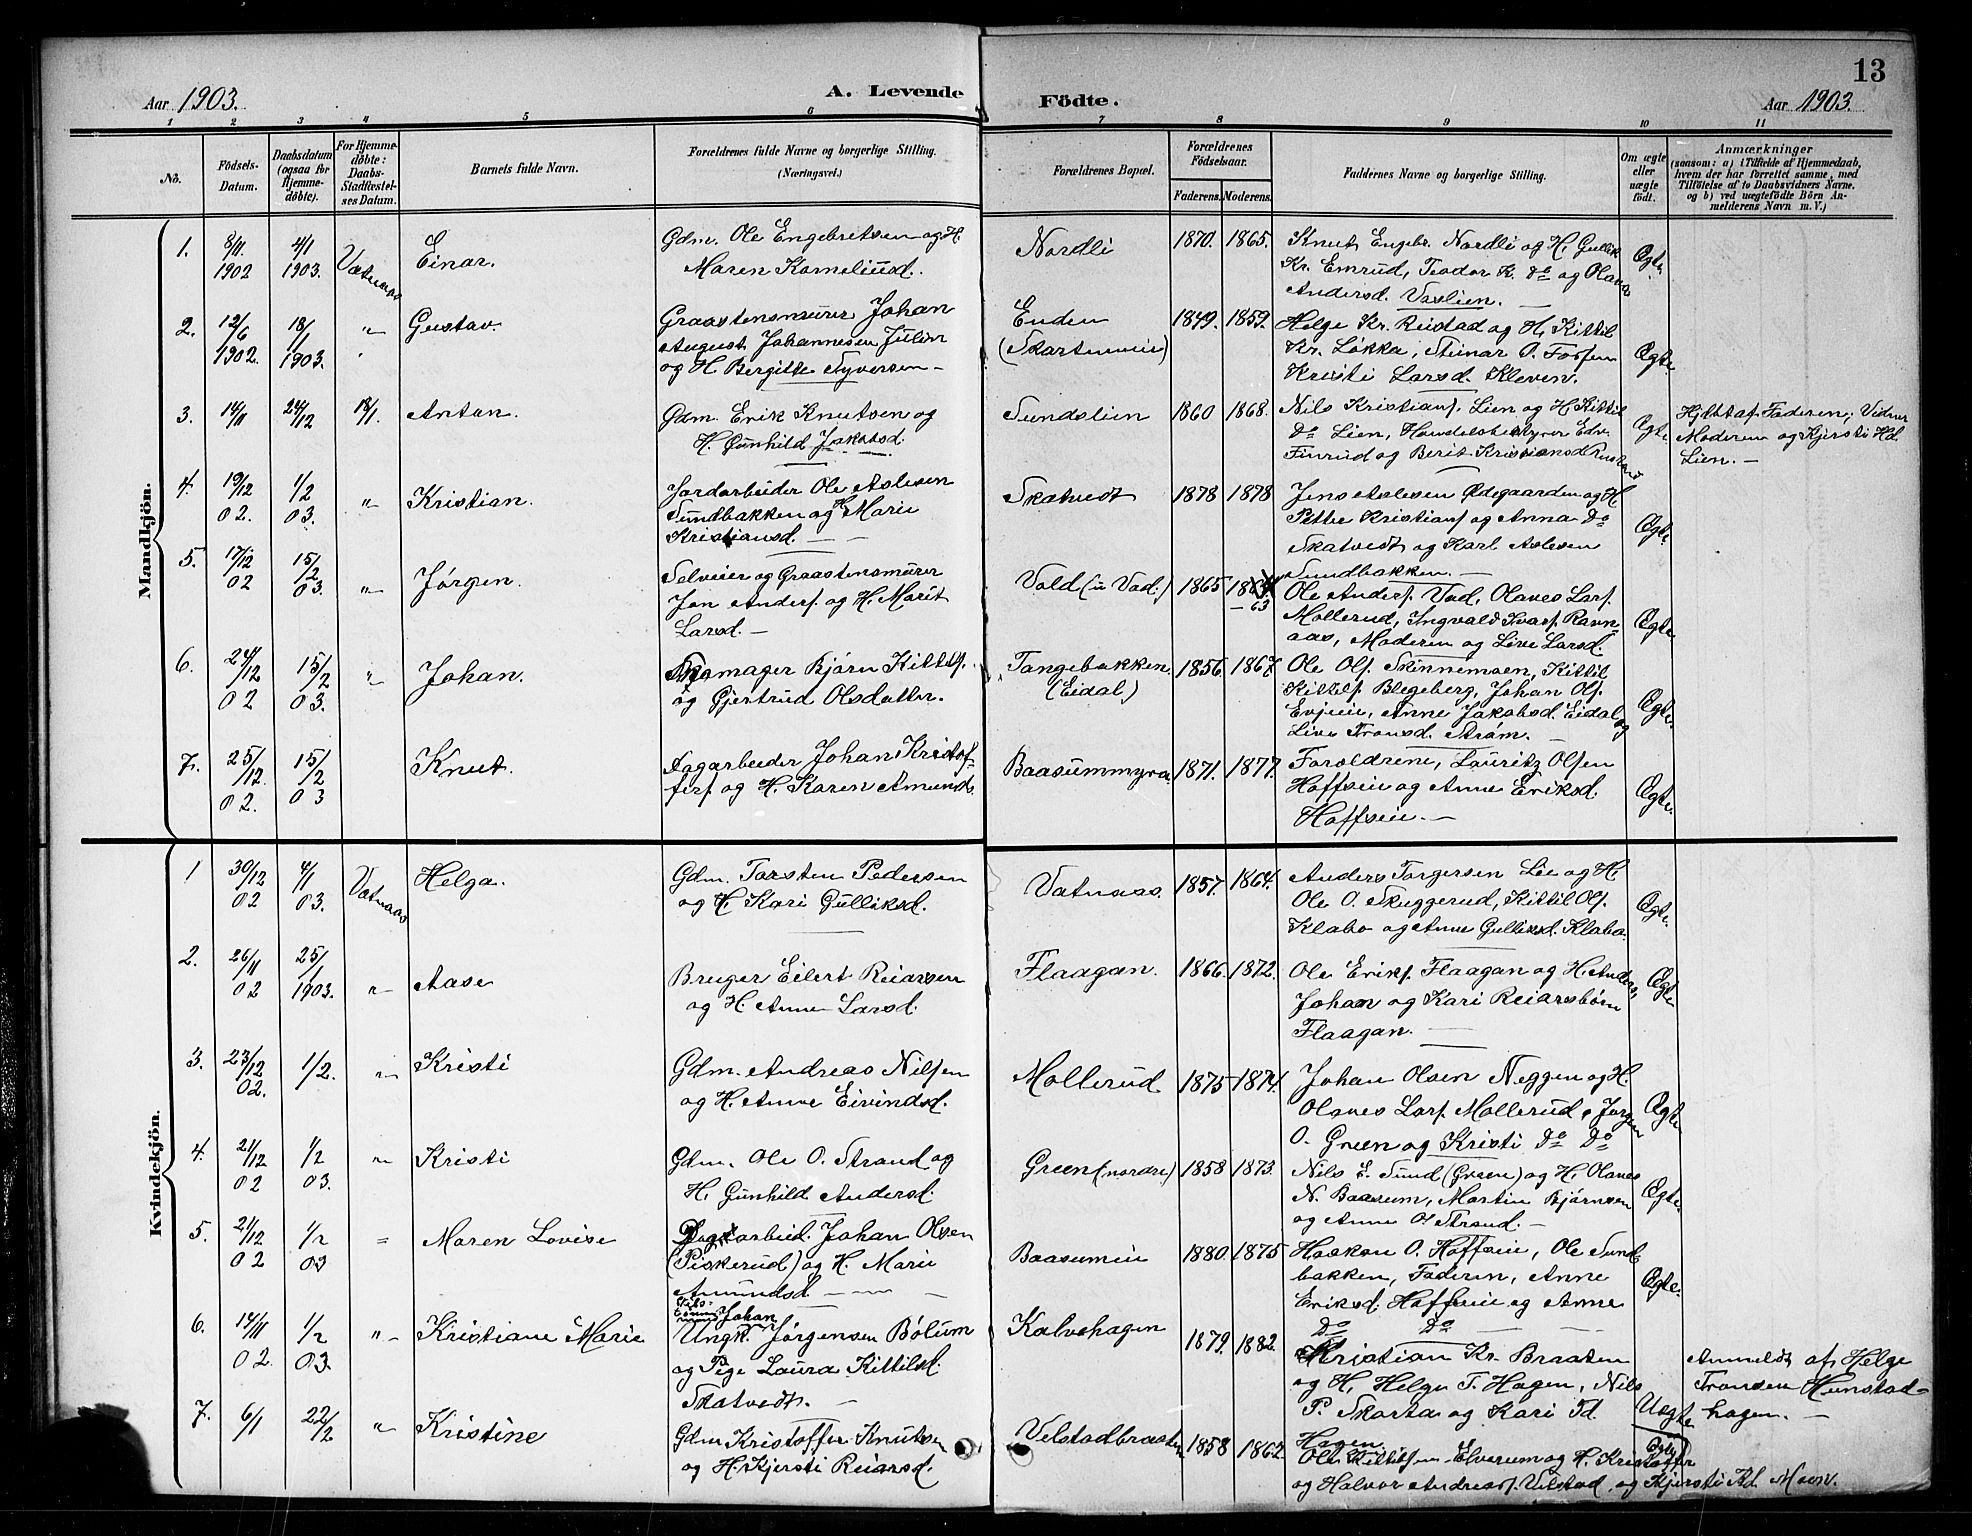 13
Aar 1903.
A. Levende Födte.
Aar 1903.
1 2 3 4 5 6 7 8 9 10 11
No.
Födsels-Datum.
Daabsdatum (ogsaa for Hjemme-döbte).
For Hjemme-döbte: Daabs-Stadfæstel-ses Datum.
Barnets fulde Navn.
Forældrenes fulde Navne og borgerlige Stilling. (Næringsvei.)
Forældrenes Bopæl.
Forældrenes Födselsaar.
Faderens. Moderens.
Faddernes Navne og borgerlige Stilling.
Om ægte eller uægte födt.
Anmærkninger
(saasom: a) i Tilfælde af Hjemmedaab,
hvem der har forrettet samme, med
Tilföielse af to Daabsvidners Navne,
og b) ved uægtefödte Börn An-
melderens Navn m. V.)
Mandkjön.
1. 8/11 1902 4/1 1903. Vatnaas Einar.
Gdm. Ole Engebretsen og H.
Maren Korneliusd.
Nordli 1870. 1865.
Knut Engebr. Nordli og H. Gullik
Kr. Emrud, Teodor K. Do og Olava
Andersd. Vaslien. —
Ægte.
2. 12/6 1902. 18/1 1903. " Gustav.
Graastensmurer Johan
August Johannesen Julin
og H. Bergitte Syversen —
Enden
(Skartumeie)
1849. 1859.
Helge Kr. Reistad og H. Kittil
Kr. Løkka, Steinar O.
Kristi Larsd. Kleven.
Ægte
3. 14/11 24/12 18/1. Anton.
Gdm. Erik Knutsen og
H. Gunhild Jakobsd.
Sundslien 1860 1868.
Nils Kristians. Lien og H. Kittil
Do Lien, Handelsbestyrer Edv.
Finrud og Berit Kristiansd.
Ægte
Hjdbt af Faderen; Vidner
Moderen og Kjersti Hd.
Lien. —
4. 19/12 02. 1/2 03. " Kristian.
Jordarbeider Ole Aslesen
Sundbakken og H. Marie
Kristiansd. —
Skatvedt 1878 1878
Jens Aslesen Ødegaarden og H.
Petter Kristians. og Anna Do
Skatvedt og Karl Aslesen
Sundbakken. —
Ægte.
5. 17/12 02 15/2 03. " Jørgen.
Selveier og Graastensmurer
Jon Anders. og H. Marit
Larsd. —
Vold (u Vad.) 1865 – 63
Ole Anders. Vad, Olaves Lars.
Mollerud, Ingvald Ivars. Ravn-
aas, Moderen og Live Larsd.
Ægte.
6. 24/12 02 15/2 03. " Johan.
Skomager Bjørn Kittils.
og Gjertrud Olsdatter.
Tangebakken.
(Eidal)
1856. 1867.
Ole Ols. Skinnemoen, Kittil
Kittels. Blegeberg, Johan Ols.
Evjeeie, Anne Jakobsd. Eidal og
Live Tronsd. Strøm. —
Ægte.
7. 25/12 02. 15/2 03 Knut.
Sagarbeider Johan Kristof-
fers. og H. Karen Amunds.
Baasummyra. 1871. 1877.
Foreldrene, Lauritz Olsen
Hoffseie og Anne Eriksd.
Hoffseie. —
Ægte.
Kvindekjön.
1 30/12 02 4/1 03. Vatnaas Helga.
Gdm. Torsten Pedersen
og H. Kari Gulliksd.
Vatnaas. 1857. 1864.
Anders Torgersen Lie og H.
Ole O. Skuggerud, Kittil Ols.
Klabo og Anne Gulliksd. Klabo.
Ægte.
2. 26/11 02 25/1 1903. " Aase
Bruger Eilert Reiarsen
og H. Anne Larsd.
Flaagan. 1866. 1872.
Ole Eriks. Flaagan og H. Anders,
Johan og Kari Reiarsbørn
Flaagan. —
Ægte
3. 23/12 02. 1/2. " Kristi
Gdm. Andreas Nilsen
og H. Anne Eivindsd.
Mollerud 1875 1874.
Johan Olsen Neggen og H.
Olaves Lars. Mollerud, Jørgen
O. Green og Kristi Do Do
Ægte
4. 21/12 02 1/2 03. " Kristi
Gdm. Ole O. Strand og
H. Gunhild Andersd.
Green (nordre) 1858 1873.
Nils E. Sund (Green) og H. Olaves
N. Baasum, Martin Bjørnsen
og Anne O. Strand. —
Ægte.
5. 21/12 02 1/2 03 " Maren Lovise
Dagarbeid. Johan Olsen
(Piskerud) og H. Marie
Amundsd. —
Baasumeie 1880. 1875
Haakon O. Hoffseie, Ole Sund-
bakken, Faderen, Anne
Eriksd. Hoffseie og Anne
Do Do —
Ægte.
6. 14/11 02. 1/2 03. " Kristiane Marie
Johan
Ungk. Jørgensen Bølum
og Pige Laura Kittilsd.
Skatvedt. —
Kalvehagen 1879. 1882.
Kristian Kr. Braaten
og H. Helge T. Hagen, Nils
P. Skarta og Kari Td.
Hagen.
Uægte
Anmeldt af Helge
Tronsen Hunstad-
hagen. —
7. 6/1 22/2 " Kristine
Gdm. Kristoffer Knutsen
og H. Kjersti Reiarsd.
Velstadbraaten 1858 1862
Ole Kittilsen Elvarum og H. Kristoffer
og Halvor Andreas. Velstad og Kjersti Kd. Moen.
Ægte